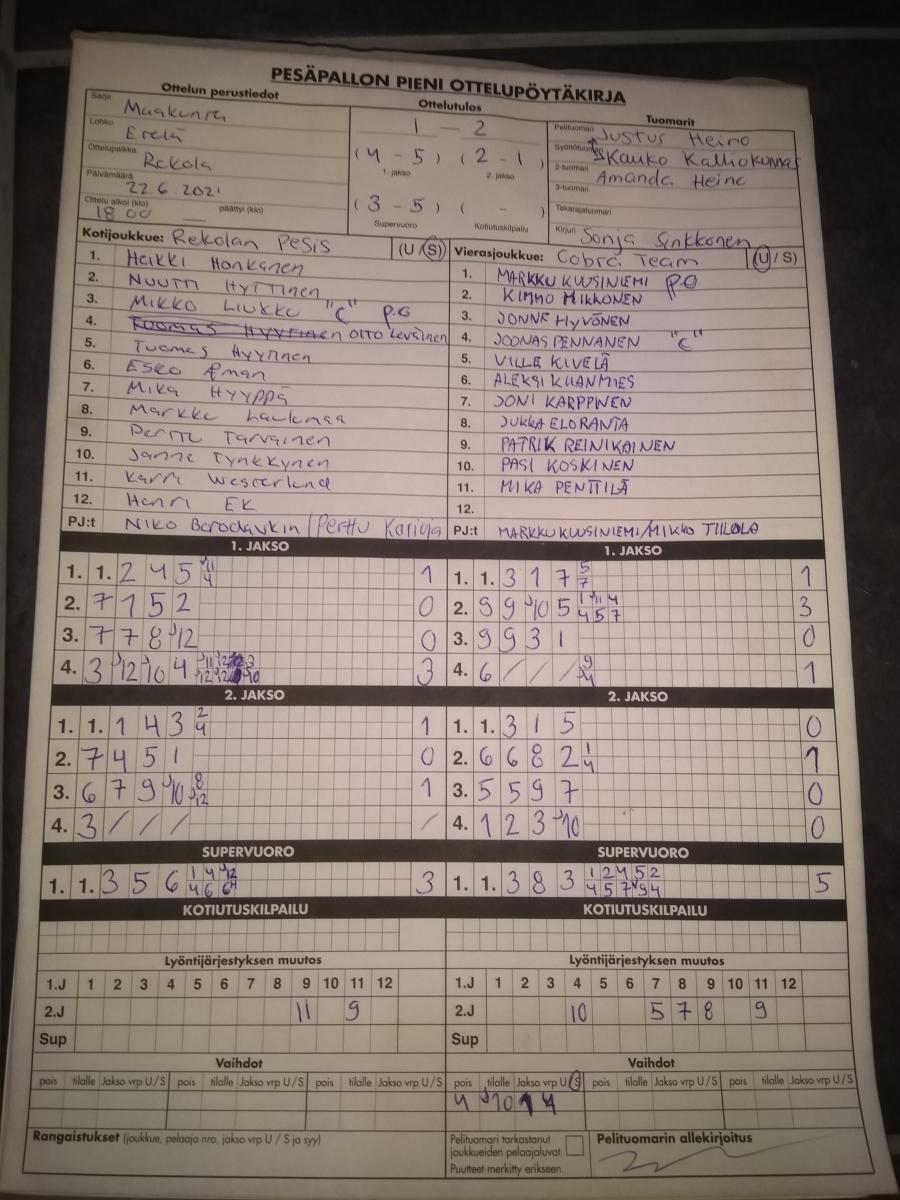 PESÄPALLON PIENI OTTELUPÖYTÄKIRJA
Ottelun perustiedot
Sarja Maakunta
Lohko Etelä
Ottelupaikka Rekola
Päivämäärä 22.6.2021
Ottelu alkoi (klo) 18.00 päättyi (klo)
Ottelutulos
1 - 2
(4 - 5) (2 - 1)
1. jakso 2. jakso
(3 - 5) ( - )
Supervuoro Kotiutuskilpailu
Tuomarit
Pelituomari Justus Heino
Syöttötuomari Kauko Kalliokunnas
2-tuomari Amanda Heino
3-tuomari
Takarajatuomari
Kirjuri Sonja Sinkkonen
Kotijoukkue: Rekolan Pesis (U/S)
1. Heikki Honkanen
2. Nuutti Hyttinen
3. Mikko Liukku "C"
4. Otto Leväinen
5. Tuomas Hyytinen
6. Esko Åman
7. Mika Hyyppä
8. Markku Laukamaa
9. Perttu Tarvainen
10. Janne Tynkkynen
11. Karri Westerlund
12. Henri Ek
PJ:t Niko Borodavkin / Perttu Karioja
Vierasjoukkue: Cobra Team (U/S)
1. MARKKU KUUSINIEMI P.O
2. KIMMO MIKKONEN
3. JONNE HYVÖNEN
4. JOONAS PENNANEN "C"
5. VILLE KIVELÄ
6. ALEKSI KUANMIES
7. JONI KARPPINEN
8. JUKKA ELORANTA
9. PATRIK REINIKAINEN
10. PASI KOSKINEN
11. MIKA PENTTILÄ
12.
PJ:t MARKKU KUUSINIEMI/MIKKO TIILOLA
1. JAKSO
1. 1. 2 4 5 1
2. 7 1 5 2 0
3. 7 7 8 J12 0
4. 3 J12 J10 4 3
2. JAKSO
1. 1. 1 4 3 2 4 1
2. 7 4 5 1 0
3. 6 7 9 J10 8 J12 1
4. 3 / / / /
SUPERVUORO
1. 1. 3 5 6 3
KOTIUTUSKILPAILU
Lyöntijärjestyksen muutos
1.J 1 2 3 4 5 6 7 8 9 10 11 12
2.J 11 9
Sup
Vaihdot
pois tilalle Jakso vrp U/S pois tilalle Jakso vrp U/S pois tilalle Jakso vrp U/S
Rangaistukset (joukkue, pelaaja nro, jakso vrp U / S ja syy)
1. JAKSO
1. 1. 3 1 7 5 7 1
2. 9 9 J10 5 1 J11 4 4 5 7 3
3. 9 9 3 1 0
4. 6 / / / 9 J4 1
2. JAKSO
1. 1. 3 1 5 0
2. 6 6 8 2 1 4 1
3. 5 5 9 7 0
4. 1 2 3 J10 0
SUPERVUORO
1. 1. 3 8 3 1 2 4 5 2 5
KOTIUTUSKILPAILU
Lyöntijärjestyksen muutos
1.J 1 2 3 4 5 6 7 8 9 10 11 12
2.J 10 5 7 8 9
Sup
Vaihdot
pois tilalle Jakso vrp U/S pois tilalle Jakso vrp U/S pois tilalle Jakso vrp U/S
4 J10 1 4
Pelituomari tarkastanut
joukkueiden pelaajaluvat.
Puutteet merkitty erikseen.
Pelituomarin allekirjoitus